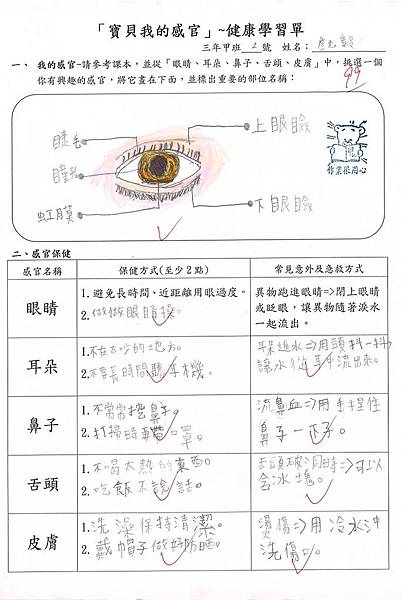 「寶貝我的感官」~健康學習單
三年甲班 2 號 姓名:
一、 我的感官-請參考課本,並從「眼睛、耳朵、鼻子、舌頭、皮膚」中,挑選一個
你有興趣的感官,將它畫在下面,並標出重要的部位名稱:
99
睫毛
上眼瞼
瞳孔
虹膜
下眼瞼
作業很用心
二、感官保健
感官名稱 保健方式(至少 2 點) 常見意外及急救方式
眼睛
1.避免長時間、近距離用眼過度。
2.做做眼睛操。
異物跑進眼睛=>閉上眼睛
或眨眼,讓異物隨著淚水
一起流出。
耳朵
1.不在太吵的地方。
2.不要長時間聽耳機。
耳朵進水=>用頭抖一抖
讓水從耳中流出來。
鼻子
1.不常常挖鼻子。
2.打掃時要帶口罩。
流鼻血=>用手捏住
鼻子一下子。
舌頭
1.不喝太熱的東西。
2.吃飯不說話。
舌頭破洞時=>可以
含冰塊。
皮膚
1.洗澡保持清潔。
2.戴帽子做好防晒。
燙傷=>用冷水沖
洗傷口。